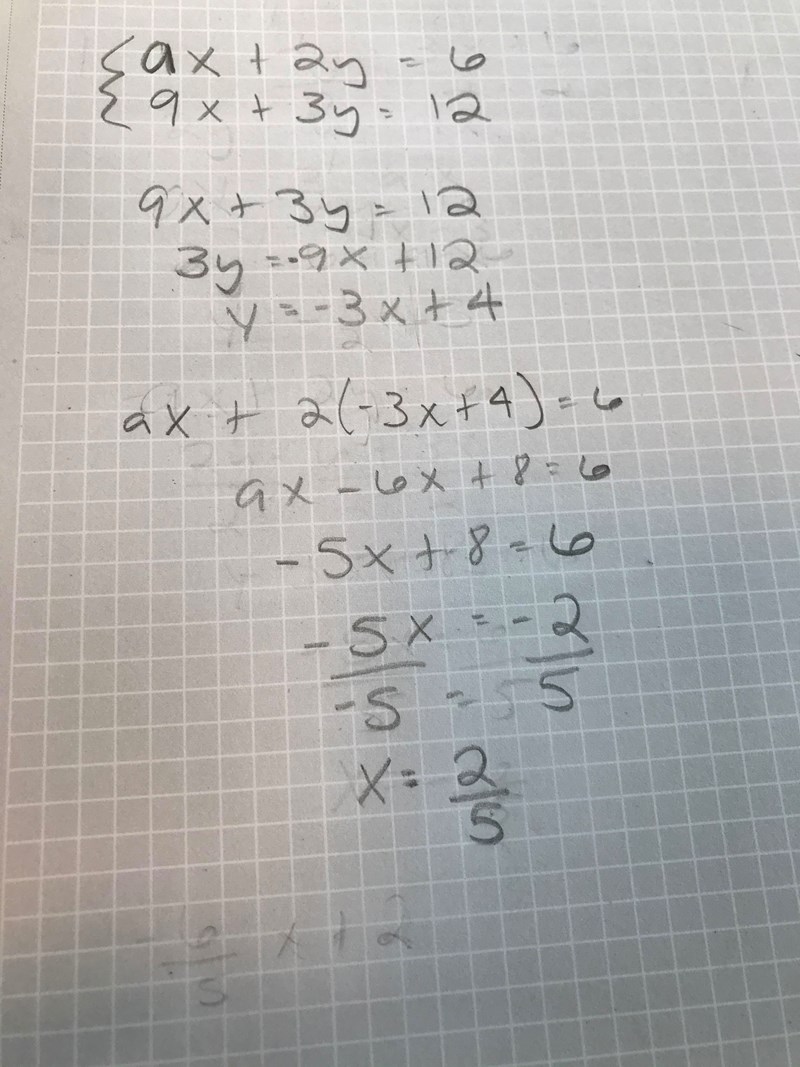 {ax + 2y = 6
{9x + 3y = 12
9x + 3y = 12
3y = -9x + 12
y = -3x + 4
ax + 2(-3x + 4) = 6
ax - 6x + 8 = 6
-5x + 8 = 6
-5x = -2
-5 = 5
x = 2
5
-6 x + 2
5